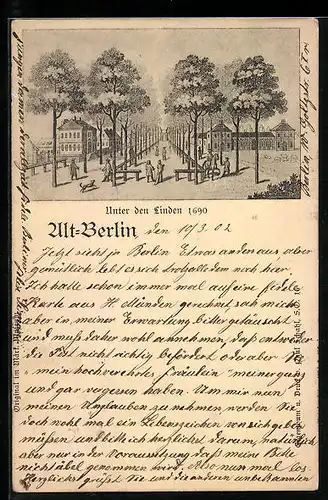 Unter den Linden 1690
Alt-Berlin den 10/3. 02
Jetzt sieht ja Berlin Etwas anders aus, aber
gemütlich lebt es sich trotzalledem noch hier.
Ich hatte schon immer mal auf eine fidele
Karte aus H. Münden gerechnet, sah mich
aber in meiner Erwartung bitter getäuscht
und muß daher wohl annehmen, daß entweder
die Post nicht richtig befördert oder aber Sie
mein hochverehrtes Fräulein meiner ganz
und gar vergessen haben. Um mir nun
meinen Unglauben zu nehmen, werden Sie
doch wohl mal ein Lebenszeichen von sich geben
müssen und bitte ich herzlichst darum, natürlich
aber nur in der Voraussetzung daß meine Bitte
nicht übel genommen wird. Also nun mal los.
Herzlichst grüßt Sie und die anderen unbekannten
Original im Märk.